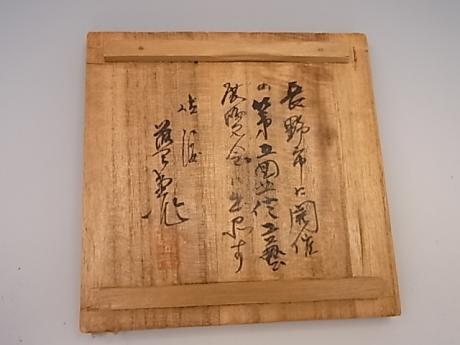 長野市に開催
の第五回上信工藝
展覧会に出品す
佐渡